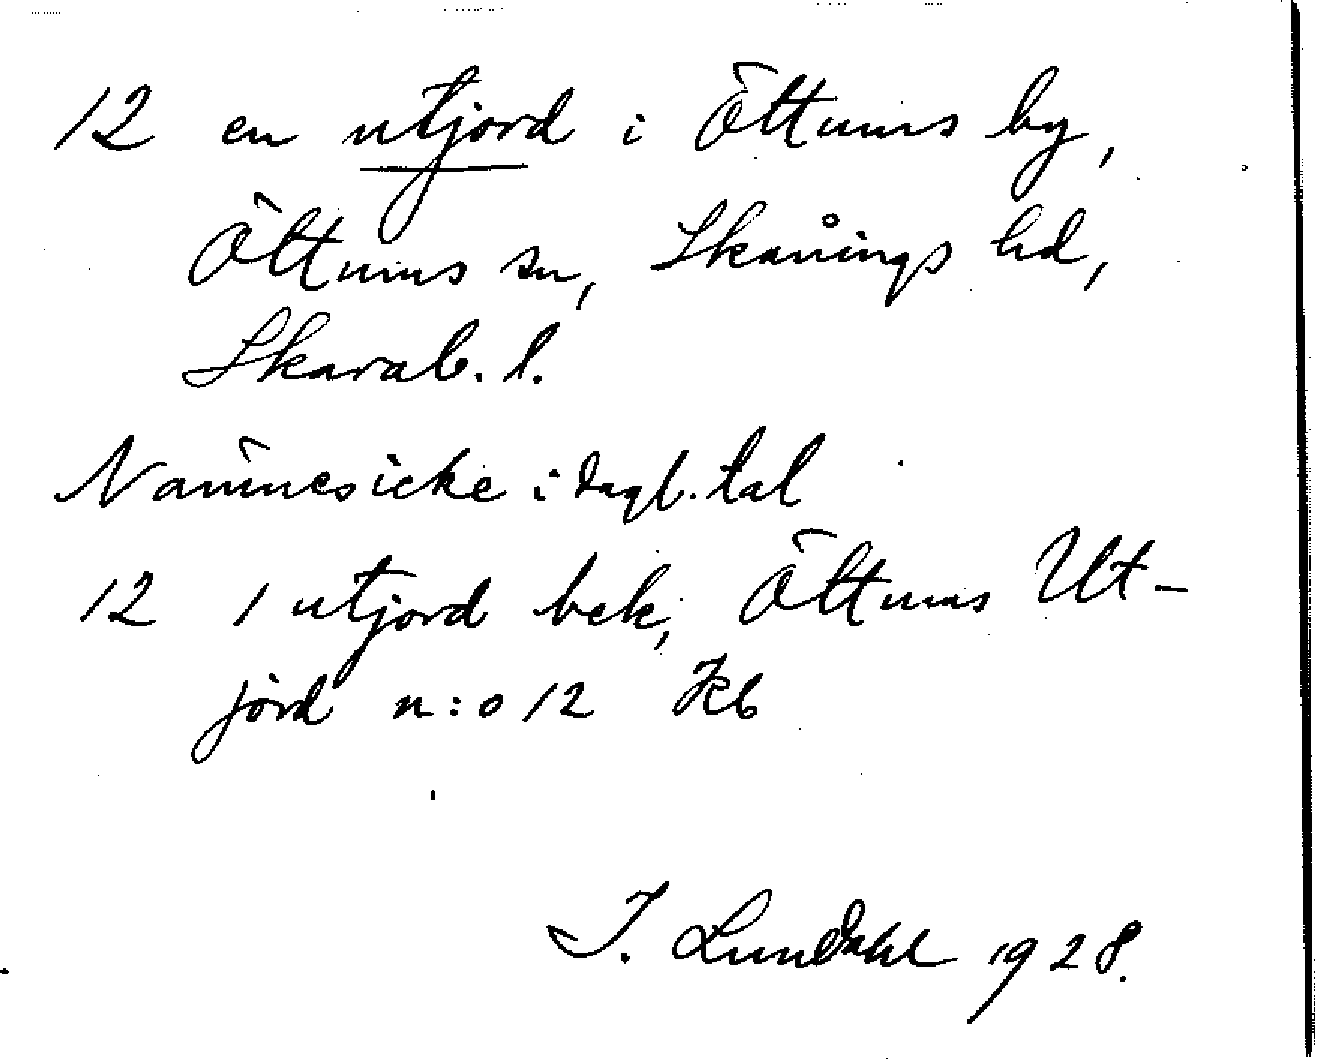 12 en utjord i Öttums by,
Öttums sn, Skånings hd,
Skarab. l.
Nämnes icke i dagl. tal
12 1 utjord bek, Öttums Ut-
jord n:o 12 Jb
I. Lundahl 1928.